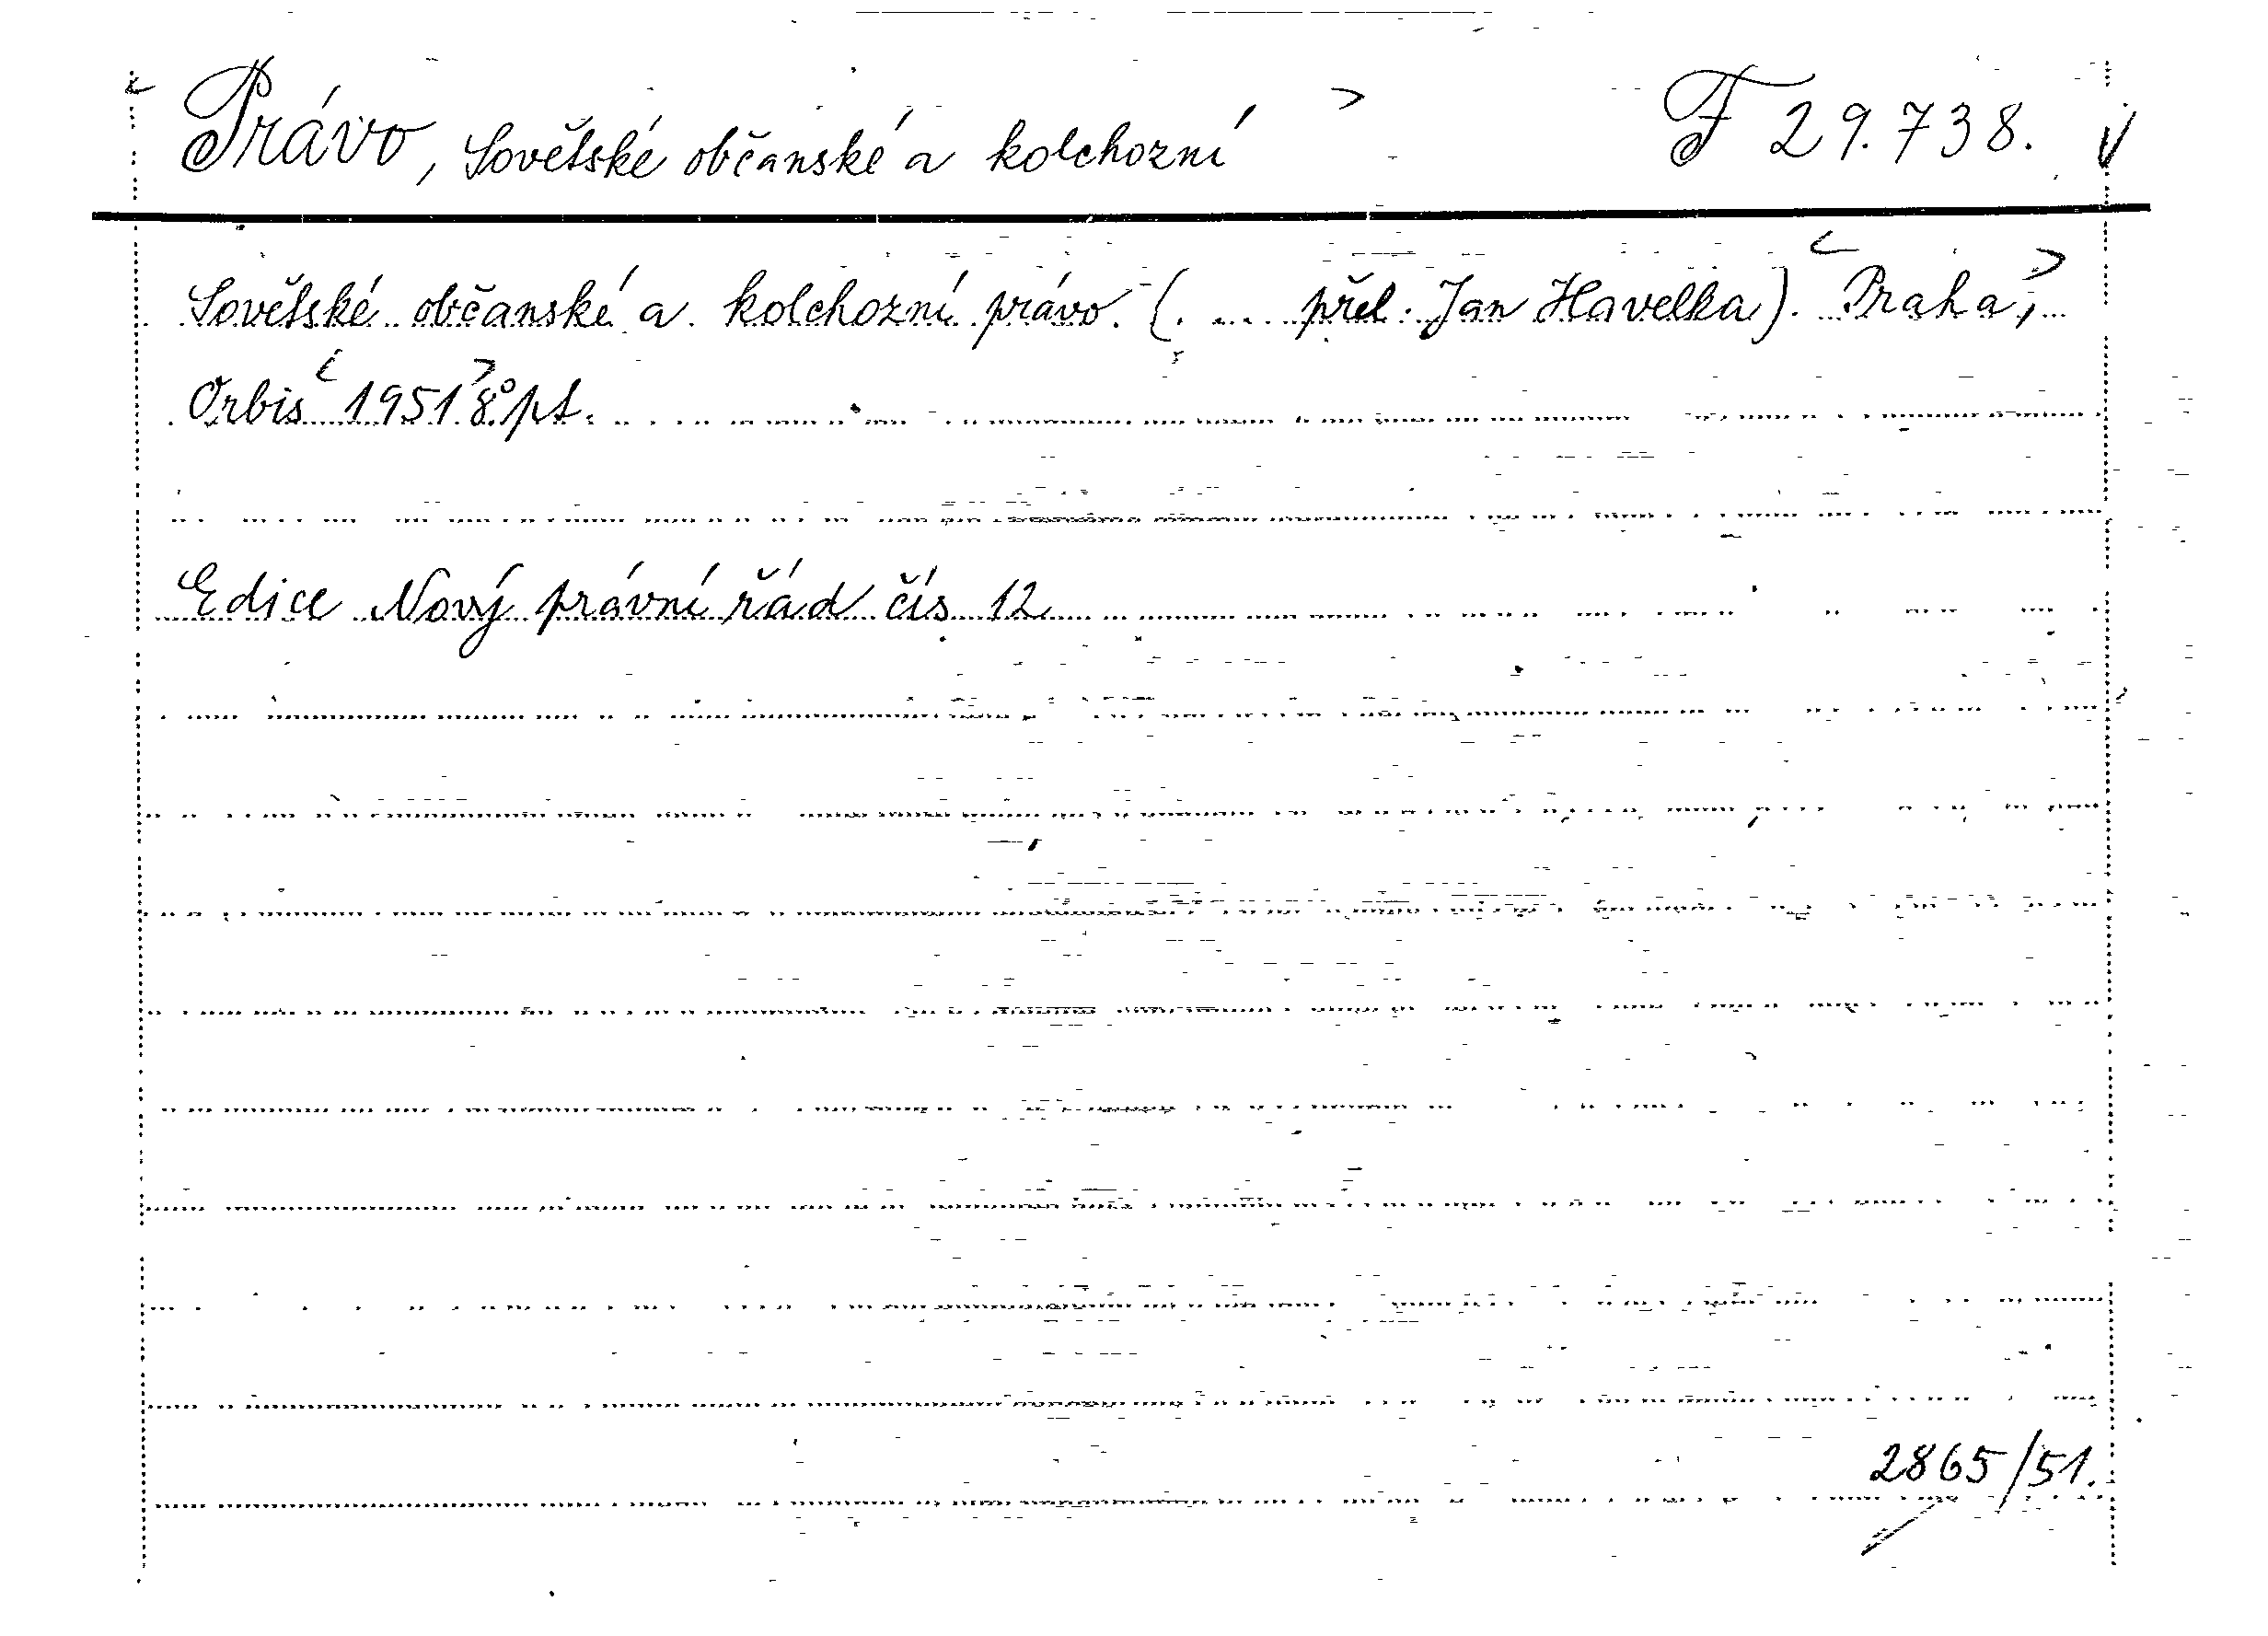 < Právo, Sovětské občanské a kolchozní > F 29.738.
Sovětské občanské a kolchozní právo. (. ... přel. Jan Havelka). <Praha,>
Orbis <1951> 8° pt.
Edice Nový právní řád čís 12
2865/51.